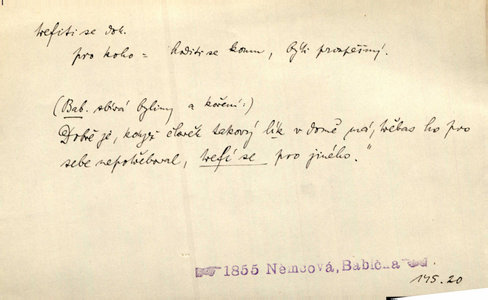 trefiti se dok.
pro koho = hoditi se komu, býti prospěšný.
(Bab. sbírá byliny a koření:)
Dobře je, když člověk takový lík v domě má, třebas ho pro
sebe nepotřeboval, trefí se pro jiného."
1855 Němcová, Babička
145.20